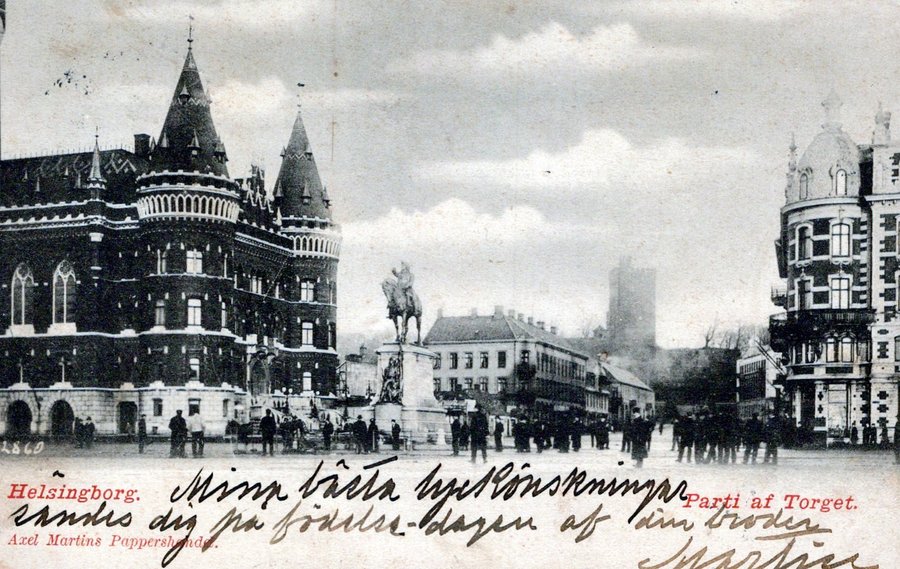 2869
Helsingborg.
Parti af Torget.
Mina bästa lyckönskningar
sändes dig på födelse-dagen af din broder
Axel Martins Pappershandel.
Martin